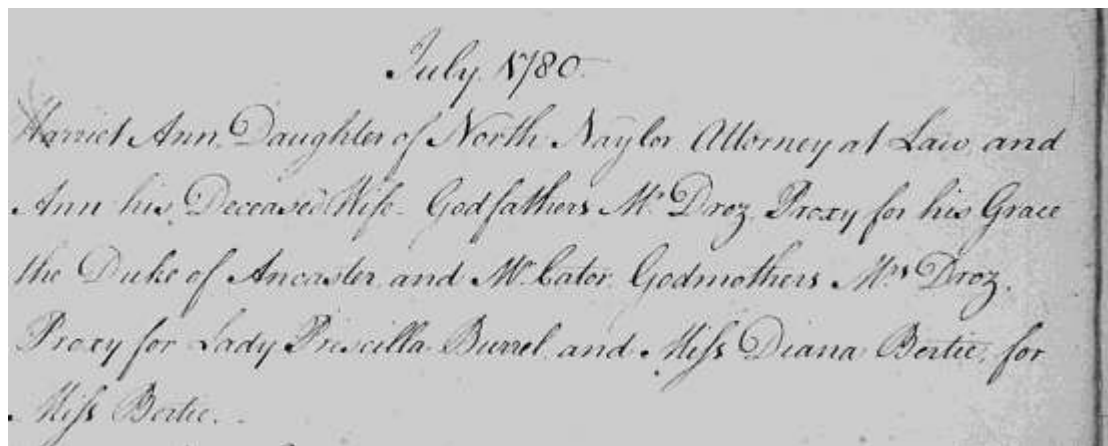 July 1780
Harriet Ann Daughter of North Naylor Attorney at Law and
Ann his Deceased Wife. Godfathers Mr Droz Proxy for his Grace
the Duke of Ancaster and Mr Cator Godmothers Mrs Droz.
Proxy for Lady Priscilla Burrel and Miſs Diana Bertie, for
Miſs Bertie.